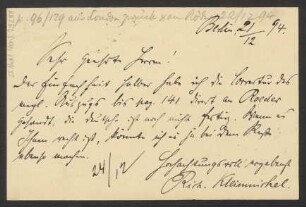 p. 96/129 aus London zurück von Röder 22/12 94
Berlin, 21/12 94.
Sehr geehrte Herren!
Der Einfachheit halber habe ich die Correctur des
engl. Auszugs bis pag. 141 direct an Roeder
gesandt. die deutsche ist noch nicht fertig. Wenn es
Ihnen recht ist, könnte ich es ja bei dem Rest
ebenso machen.
Hochachtungsvoll ergebenst
24/12 Rich. Kleinmichel.